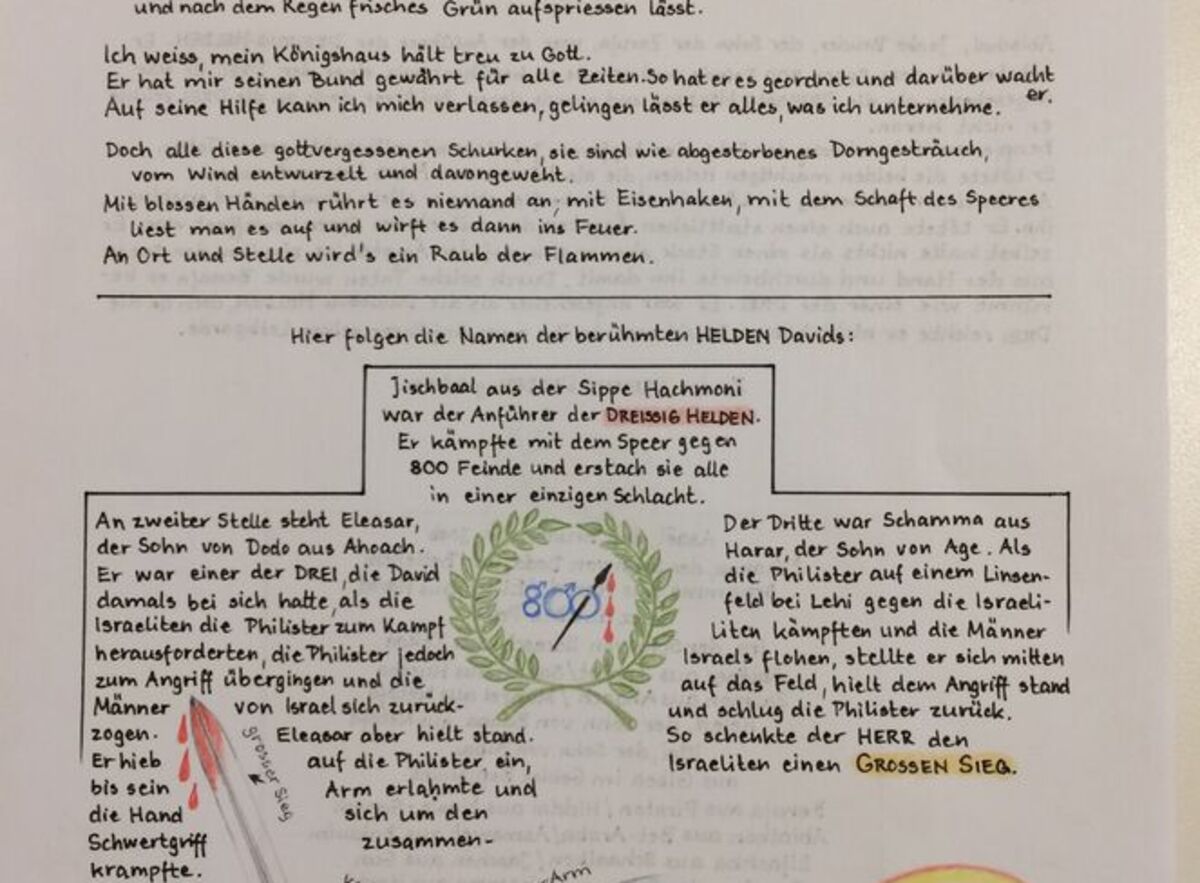 und nach dem Regen frisches Grün aufspriessen lässt.
Ich weiss, mein Königshaus hält treu zu Gott.
Er hat mir seinen Bund gewährt für alle Zeiten. So hat er es geordnet und darüber wacht er.
Auf seine Hilfe kann ich mich verlassen, gelingen lässt er alles, was ich unternehme.
Doch alle diese gottvergessenen Schurken, sie sind wie abgestorbenes Dorngesträuch,
vom Wind entwurzelt und davongeweht.
Mit blossen Händen rührt es niemand an; mit Eisenhaken, mit dem Schaft des Speeres
liest man es auf und wirft es dann ins Feuer.
An Ort und Stelle wird's ein Raub der Flammen.
Hier folgen die Namen der berühmten HELDEN Davids:
Jischbaal aus der Sippe Hachmoni
war der Anführer der DREISSIG HELDEN.
Er kämpfte mit dem Speer gegen
800 Feinde und erstach sie alle
in einer einzigen Schlacht.
An zweiter Stelle steht Eleasar,
der Sohn von Dodo aus Ahoach.
Er war einer der DREI, die David
damals bei sich hatte, als die
Israeliten die Philister zum Kampf
herausforderten, die Philister jedoch
zum Angriff übergingen und die
Männer von Israel sich zurück-
zogen. Eleasar aber hielt stand.
Er hieb auf die Philister ein,
bis sein Arm erlahmte und
die Hand sich um den
Schwertgriff zusammen-
krampfte.
grosser Sieg
Arm
800
Der Dritte war Schamma aus
Harar, der Sohn von Age. Als
die Philister auf einem Linsen-
feld bei Lehi gegen die Israeli-
liten kämpften und die Männer
Israels flohen, stellte er sich mitten
auf das Feld, hielt dem Angriff stand
und schlug die Philister zurück.
So schenkte der HERR den
Israeliten einen GROSSEN SIEG.